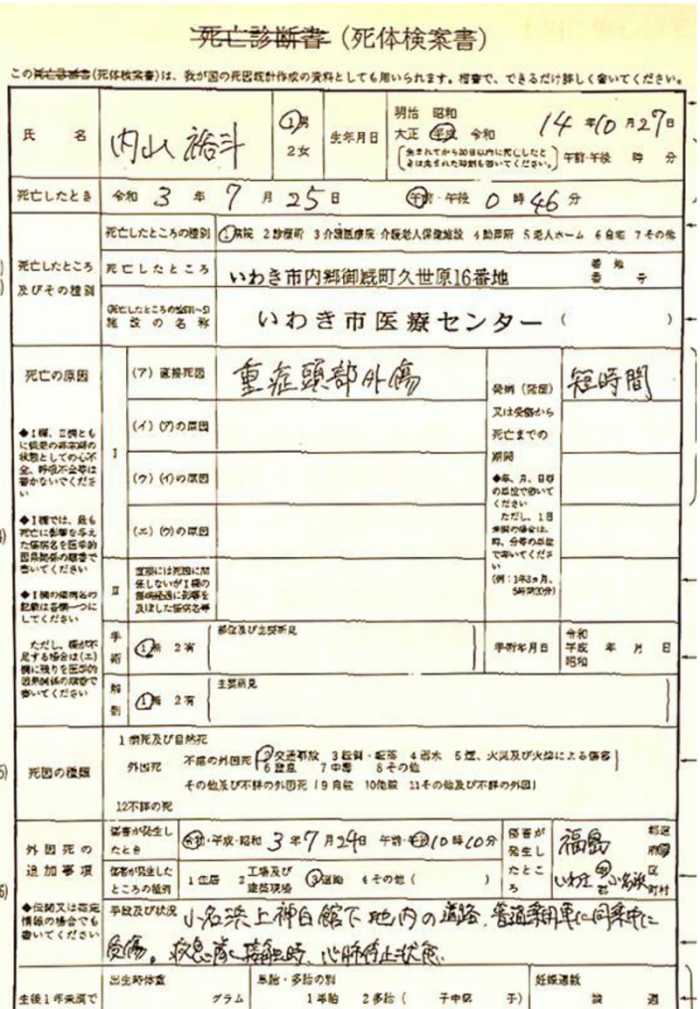 死亡診断書（死体検案書）
この死亡診断書(死体検案書)は、我が国の死因統計作成の資料としても用いられます。楷書で、できるだけ詳しく書いてください。
氏 名
内山 裕斗
1男
2女
生年月日
明治 昭和
大正 平成 令和
14 年 10 月 27 日
(生まれてから30日以内に死亡したときは生まれた時刻も書いてください。)
午前・午後 時 分
死亡したとき 令和 3 年 7 月 25 日 午前・午後 0 時 46 分
死亡したところ
及びその種別
死亡したところの種別 1病院 2診療所 3介護医療院・介護老人保健施設 4助産所 5老人ホーム 6自宅 7その他
死亡したところ いわき市内郷御厩町久世原16番地
番地
番 号
(死亡したところの種別1~5)
施設の名称
いわき市医療センター ( )
死亡の原因
◆Ⅰ欄、Ⅱ欄とも
に疾患の終末期の
状態としての心不
全、呼吸不全等は
書かないでくださ
い
◆Ⅰ欄では、最も
死亡に影響を与え
た傷病名を医学的
因果関係の順番で
書いてください
◆Ⅰ欄の傷病名の
記載は各欄一つに
してください
ただし、欄が不
足する場合は(エ)
欄に残りを医学的
因果関係の順番で
書いてください
Ⅰ
(ア) 直接死因 重症頭部外傷
(イ) (ア)の原因
(ウ) (イ)の原因
(エ) (ウ)の原因
Ⅱ
直接には死因に関
係しないがⅠ欄の
傷病経過に影響を
及ぼした傷病名等
発病(発症)
又は受傷から
死亡までの
期間
短時間
◆年、月、日等
の単位で書いて
ください
ただし、1日
未満の場合は、
時、分等の単位
で書いてくださ
い
(例:1年3ヵ月、
5時間20分)
手術
1無 2有
部位及び主要所見
手術年月日
令和
平成
昭和
年 月 日
解剖
1無 2有
主要所見
死因の種類
1 病死及び自然死
外因死
不慮の外因死 2交通事故 3転倒・転落 4溺水 5煙、火災及び火焔による傷害
6窒息 7中毒 8その他
その他及び不詳の外因死 9自殺 10他殺 11その他及び不詳の外因
12不詳の死
外因死の
追加事項
◆伝聞又は推定
情報の場合でも
書いてください
傷害が発生し
たとき
令和・平成・昭和 3 年 7 月 24 日 午前・午後 10 時 10 分
傷害が発生した
ところの種別
1住居 2工場及び建築現場 3道路 4その他( )
傷害が
発生し
たとこ
ろ
福島 都道府県
いわき 市郡 小名浜 区町村
手段及び状況 小名浜上神白館下地内の道路、普通乗用車に同乗中に
受傷。救急隊接触時、心肺停止状態
生後1年未満で
出生時体重
グラム
単胎・多胎の別
1単胎 2多胎( 子中第 子)
妊娠週数
満 週